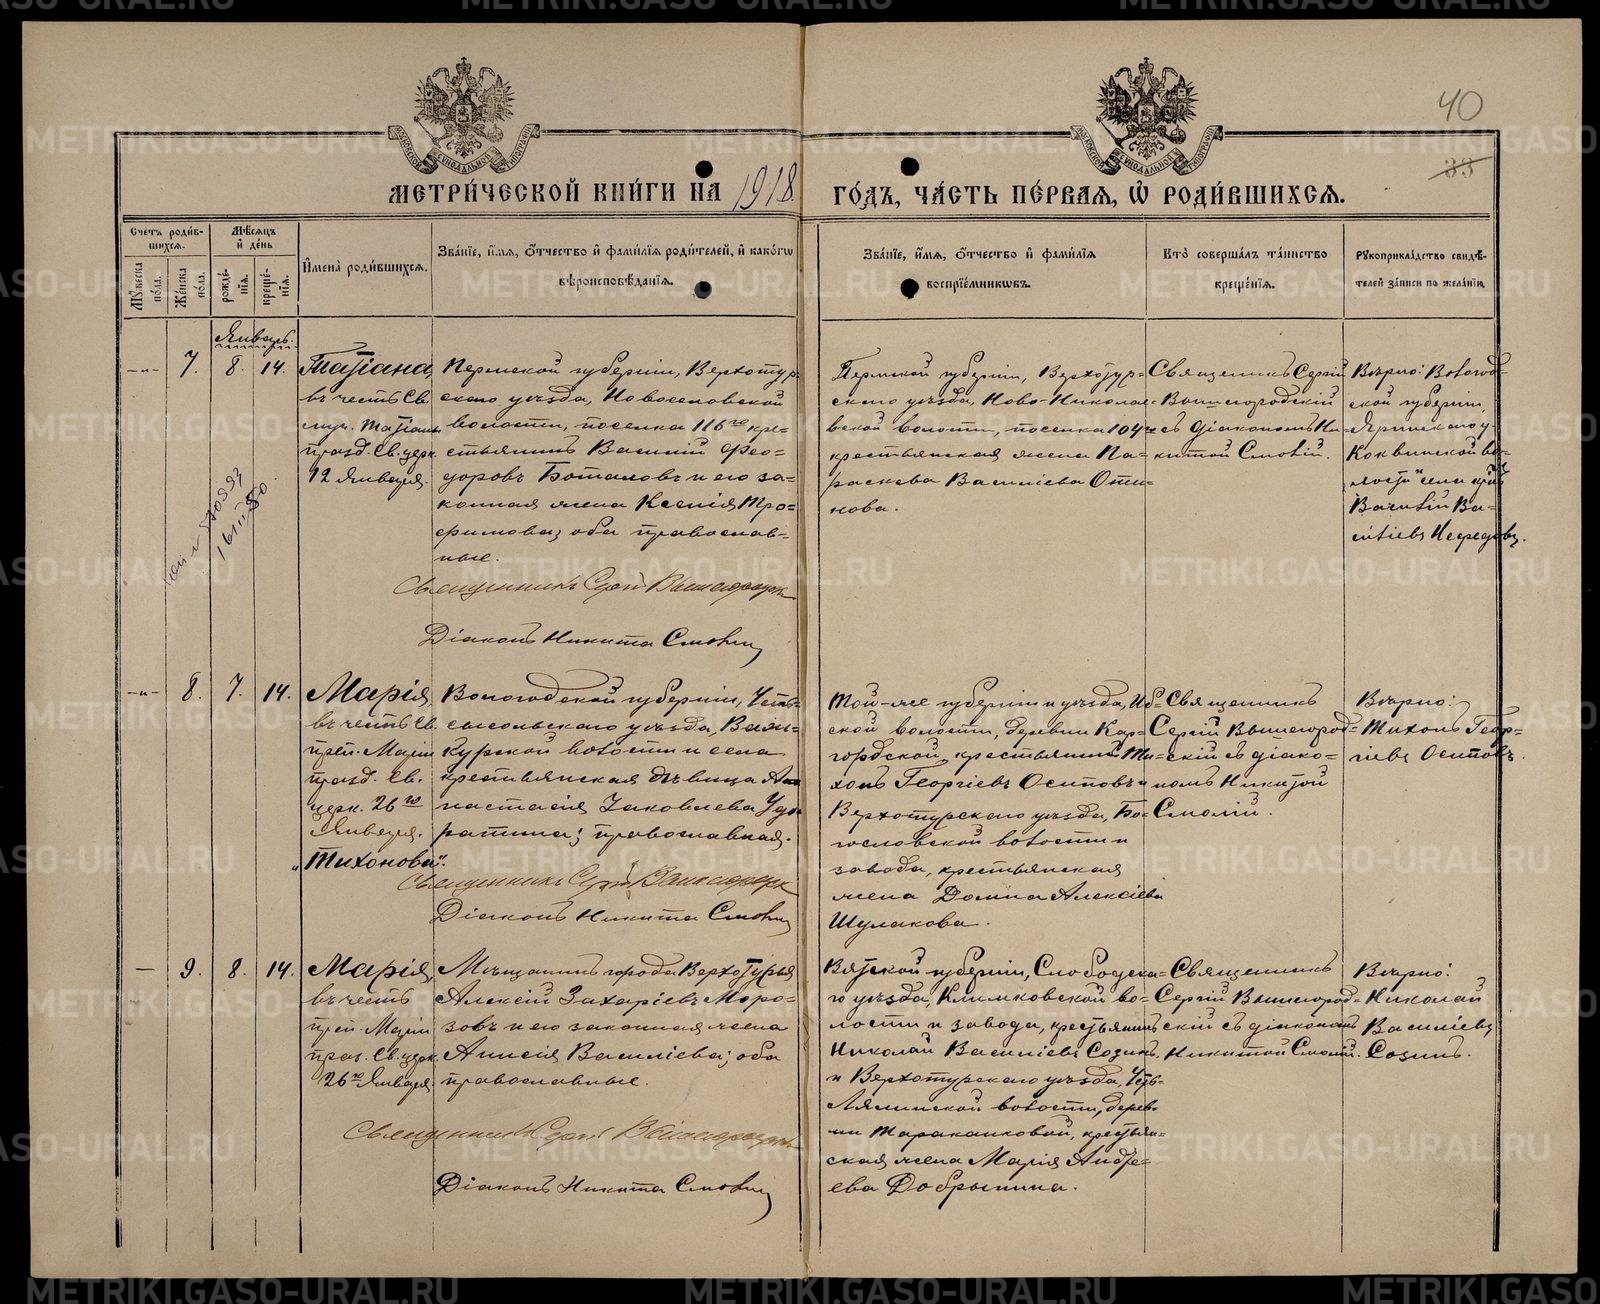 40
33
МЕТРИ́ЧЕСКОЙ КНИ́ГИ НА 1918 ГО́ДЪ, ЧА́СТЬ ПЕ́РВАЯ, Ѽ РОДИ́ВШИХСѦ.
Счетъ роди́вшихсѧ.
Мꙋ́жеска по́ла.
Же́нска по́ла.
Мѣ́сѧцъ и҆ де́нь
рожде́нїѧ.
креще́нїѧ.
И҆мена̀ роди́вшихсѧ.
Зва́нїе, и҆́мѧ, ѻ҆́тчество и҆ фами́лїѧ роди́телей, и҆ како́гѡ
вѣроисповѣ́данїѧ.
Зва́нїе, и҆́мѧ, ѻ҆́тчество и҆ фами́лїѧ
воспрїе́мникѡвъ.
Кто̀ соверша́лъ та́инство
креще́нїѧ.
Рꙋкоприкла́дство свидѣ́-
телей за́писи по жела́нїю.
Январь.
7. 8. 14.
Татіана,
въ честь Св.
муч. Татіаны
празд. Св. церк.
12 Января.
Пермской губерніи, Верхотур-
скаго уѣзда, Новоселовской
волости, поселка 116го кре-
стьянинъ Василій Ѳео-
доровъ Боталовъ и его за-
конная жена Ксенія Тро-
фимова; оба православ-
ные.
Священникъ Сергій Вышегородскій
Діаконъ Никита Смолій
Пермской губерніи, Верхотур-
скаго уѣзда, Ново-Николае-
вской волости, поселка 104
крестьянская жена Па-
раскева Василіева Оти-
нова.
Священникъ Сергій
Вышегородскій
съ діакономъ Ни-
китой Смолій.
Вѣрно: Вологод-
ской губерніи,
Яринскаго у.
Коквинской во-
лости села
Василій Ва-
силіевъ
8. 7. 14.
Марія,
въ честь Св.
преп. Маріи
празд. Св.
церк. 26го
Января.
„Тихонова".
Вологодской губерніи, Усть-
сысольскаго уѣзда,
волости и села
крестьянская дѣвица Ана-
стасія Іаковлева Удо-
ратина; православная.
Священникъ Сергій Вышегородскій
Діаконъ Никита Смолій
Той-же губерніи и уѣзда, Иб-
ской волости, деревни Кар-
гордской крестьянинъ Ти-
хонъ Георгіевъ Осиповъ и
Верхотурскаго уѣзда, Бо-
гословской волости и
завода, крестьянская
жена Домна Алексіева
Шулакова.
Священникъ
Сергій Вышегород-
скій съ діако-
номъ Никитой
Смолій.
Вѣрно:
Тихонъ Геор-
гіевъ Осиповъ.
9. 8. 14.
Марія,
въ честь
преп. Маріи
праз. Св. церк.
26го Января.
Мѣщанинъ города Верхотурья
Алексій Захаріевъ Моро-
зовъ и его законная жена
Анисія Василіева; оба
православные.
Священникъ Сергій Вышегородскій
Діаконъ Никита Смолій
Вятской губерніи, Слободска-
го уѣзда, Климковской во-
лости и завода, крестьянинъ
Николай Василіевъ Созинъ
и Верхотурскаго уѣзда, Усть-
Лялинской волости, дерев-
ни Таракановой, крестьян-
ская жена Марія Андре-
ева Добрынина.
Священникъ
Сергій Вышегород-
скій съ діакономъ
Никитой Смолій.
Вѣрно:
Николай
Василіевъ
Созинъ.
METRIKI.GASO-URAL.RU